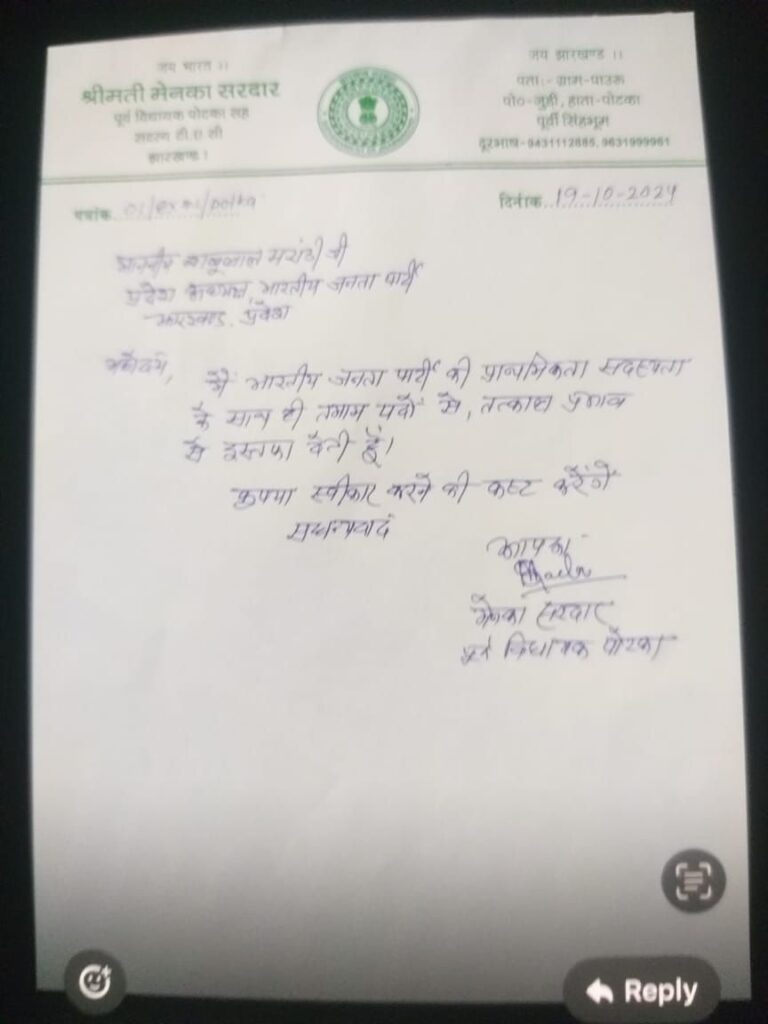 जय भारत ।।
श्रीमती मेनका सरदार
पूर्व विधायक पोटका सह
सदस्य टी.ए सी
झारखण्ड ।
जय झारखण्ड ।।
पता:- ग्राम-पाउरू
पो०-जुड़ी, हाता-पोटका
पूर्वी सिंहभूम
दूरभाष-9431112685, 9631999961
पत्रांक 01/
दिनांक 19-10-2024
माननीय बाबूलाल मरांडी जी
प्रदेश अध्यक्ष, भारतीय जनता पार्टी
झारखण्ड, प्रदेश
महोदय,
मैं भारतीय जनता पार्टी की प्राथमिकता सदस्यता
के साथ ही तमाम पदों से, तत्काल प्रभाव
से इस्तफा देती हूँ।
कृपया स्वीकार करने की कष्ट करेंगें
सधन्यवाद
आपका
मेनका सरदार
पूर्व विधायक पोटका
Reply